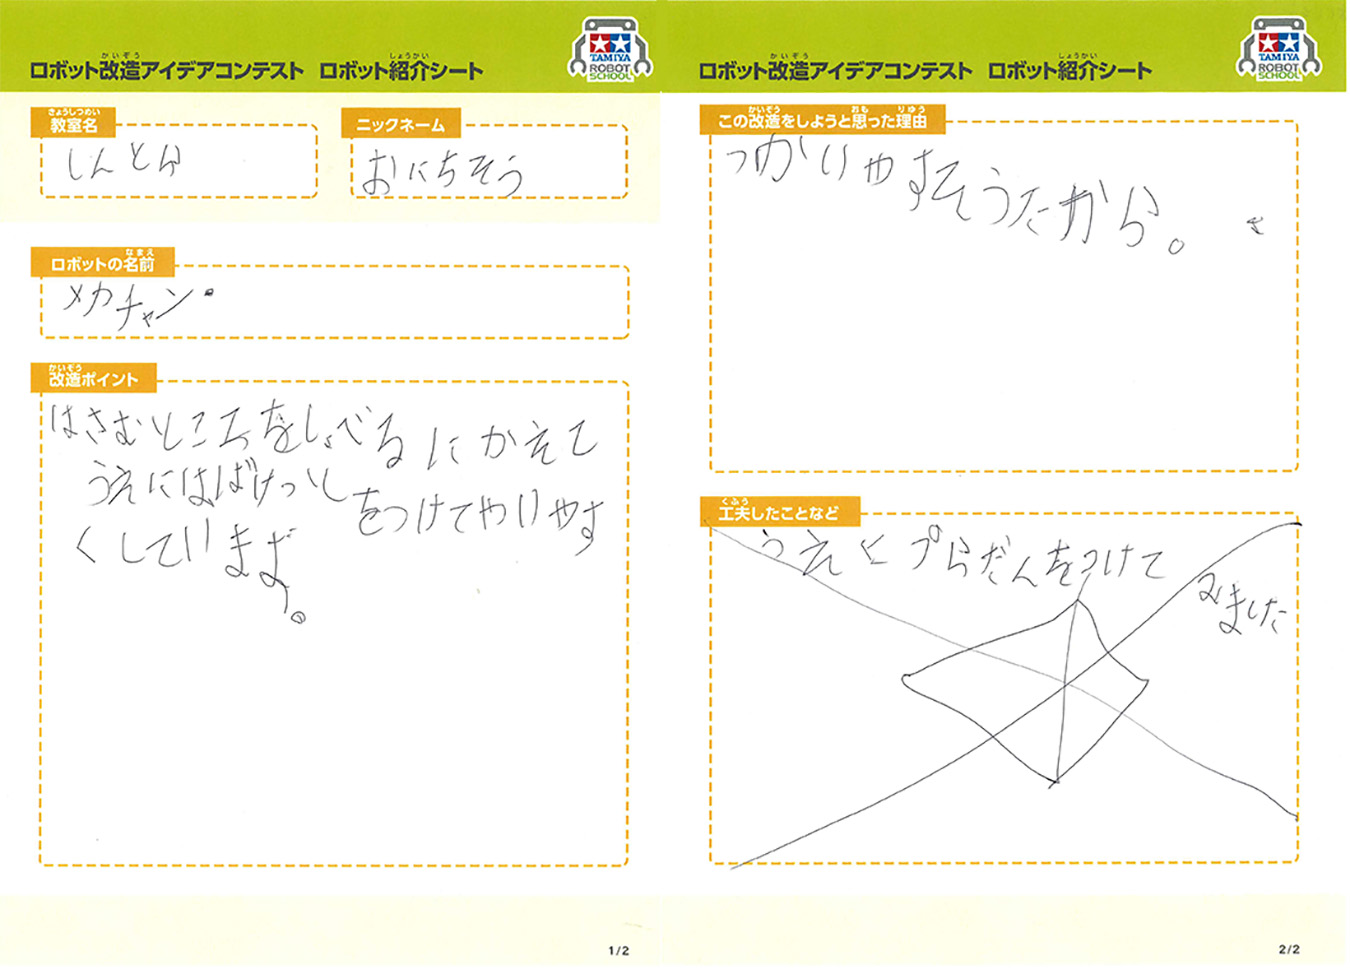 かいぞう しょうかい
ロボット改造アイデアコンテスト ロボット紹介シート
TAMIYA
ROBOT
SCHOOL
きょうしつめい
教室名
しんとか
ニックネーム
おにちそう
なまえ
ロボットの名前
メカチャン。
かいぞう
改造ポイント
はさむところをしょべるにかえて
うえにはばけっとをつけてやりやす
くしています。
1/2
かいぞう しょうかい
ロボット改造アイデアコンテスト ロボット紹介シート
TAMIYA
ROBOT
SCHOOL
かいぞう おも りゆう
この改造をしようと思った理由
つかいやすそうだから。
くふう
工夫したことなど
うえにプらだんをつけて
みました
2/2